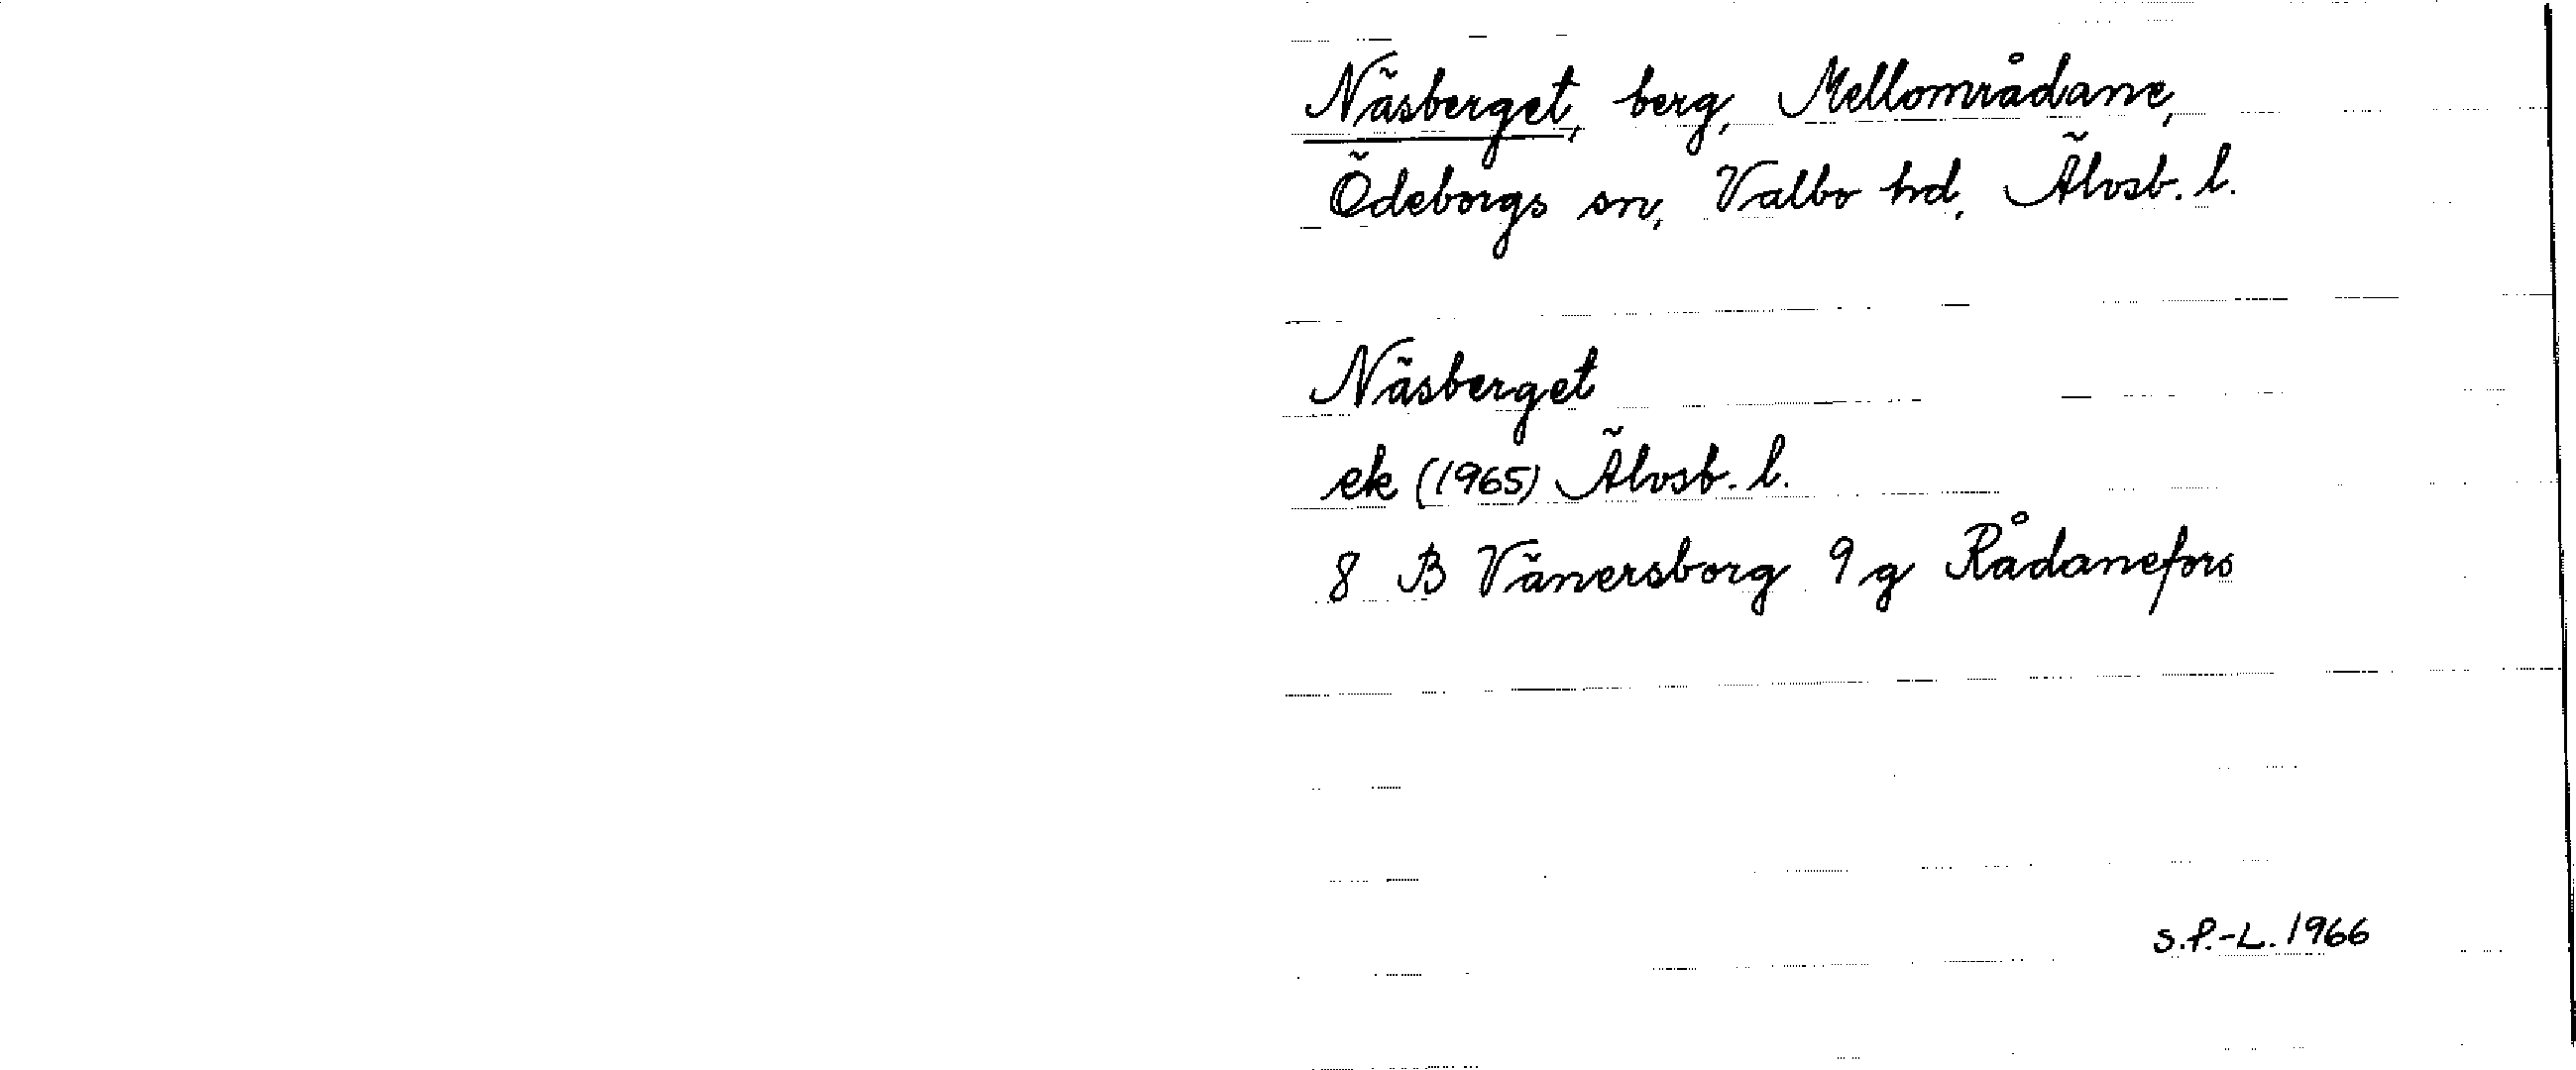 Näsberget, berg, Mellområdane,
Ödeborgs sn, Valbo hd, Älvsb. l.
Näsberget
ek (1965) Älvsb. l.
8 B Vänersborg 9 g Rådanefors
S.P.-L. 1966